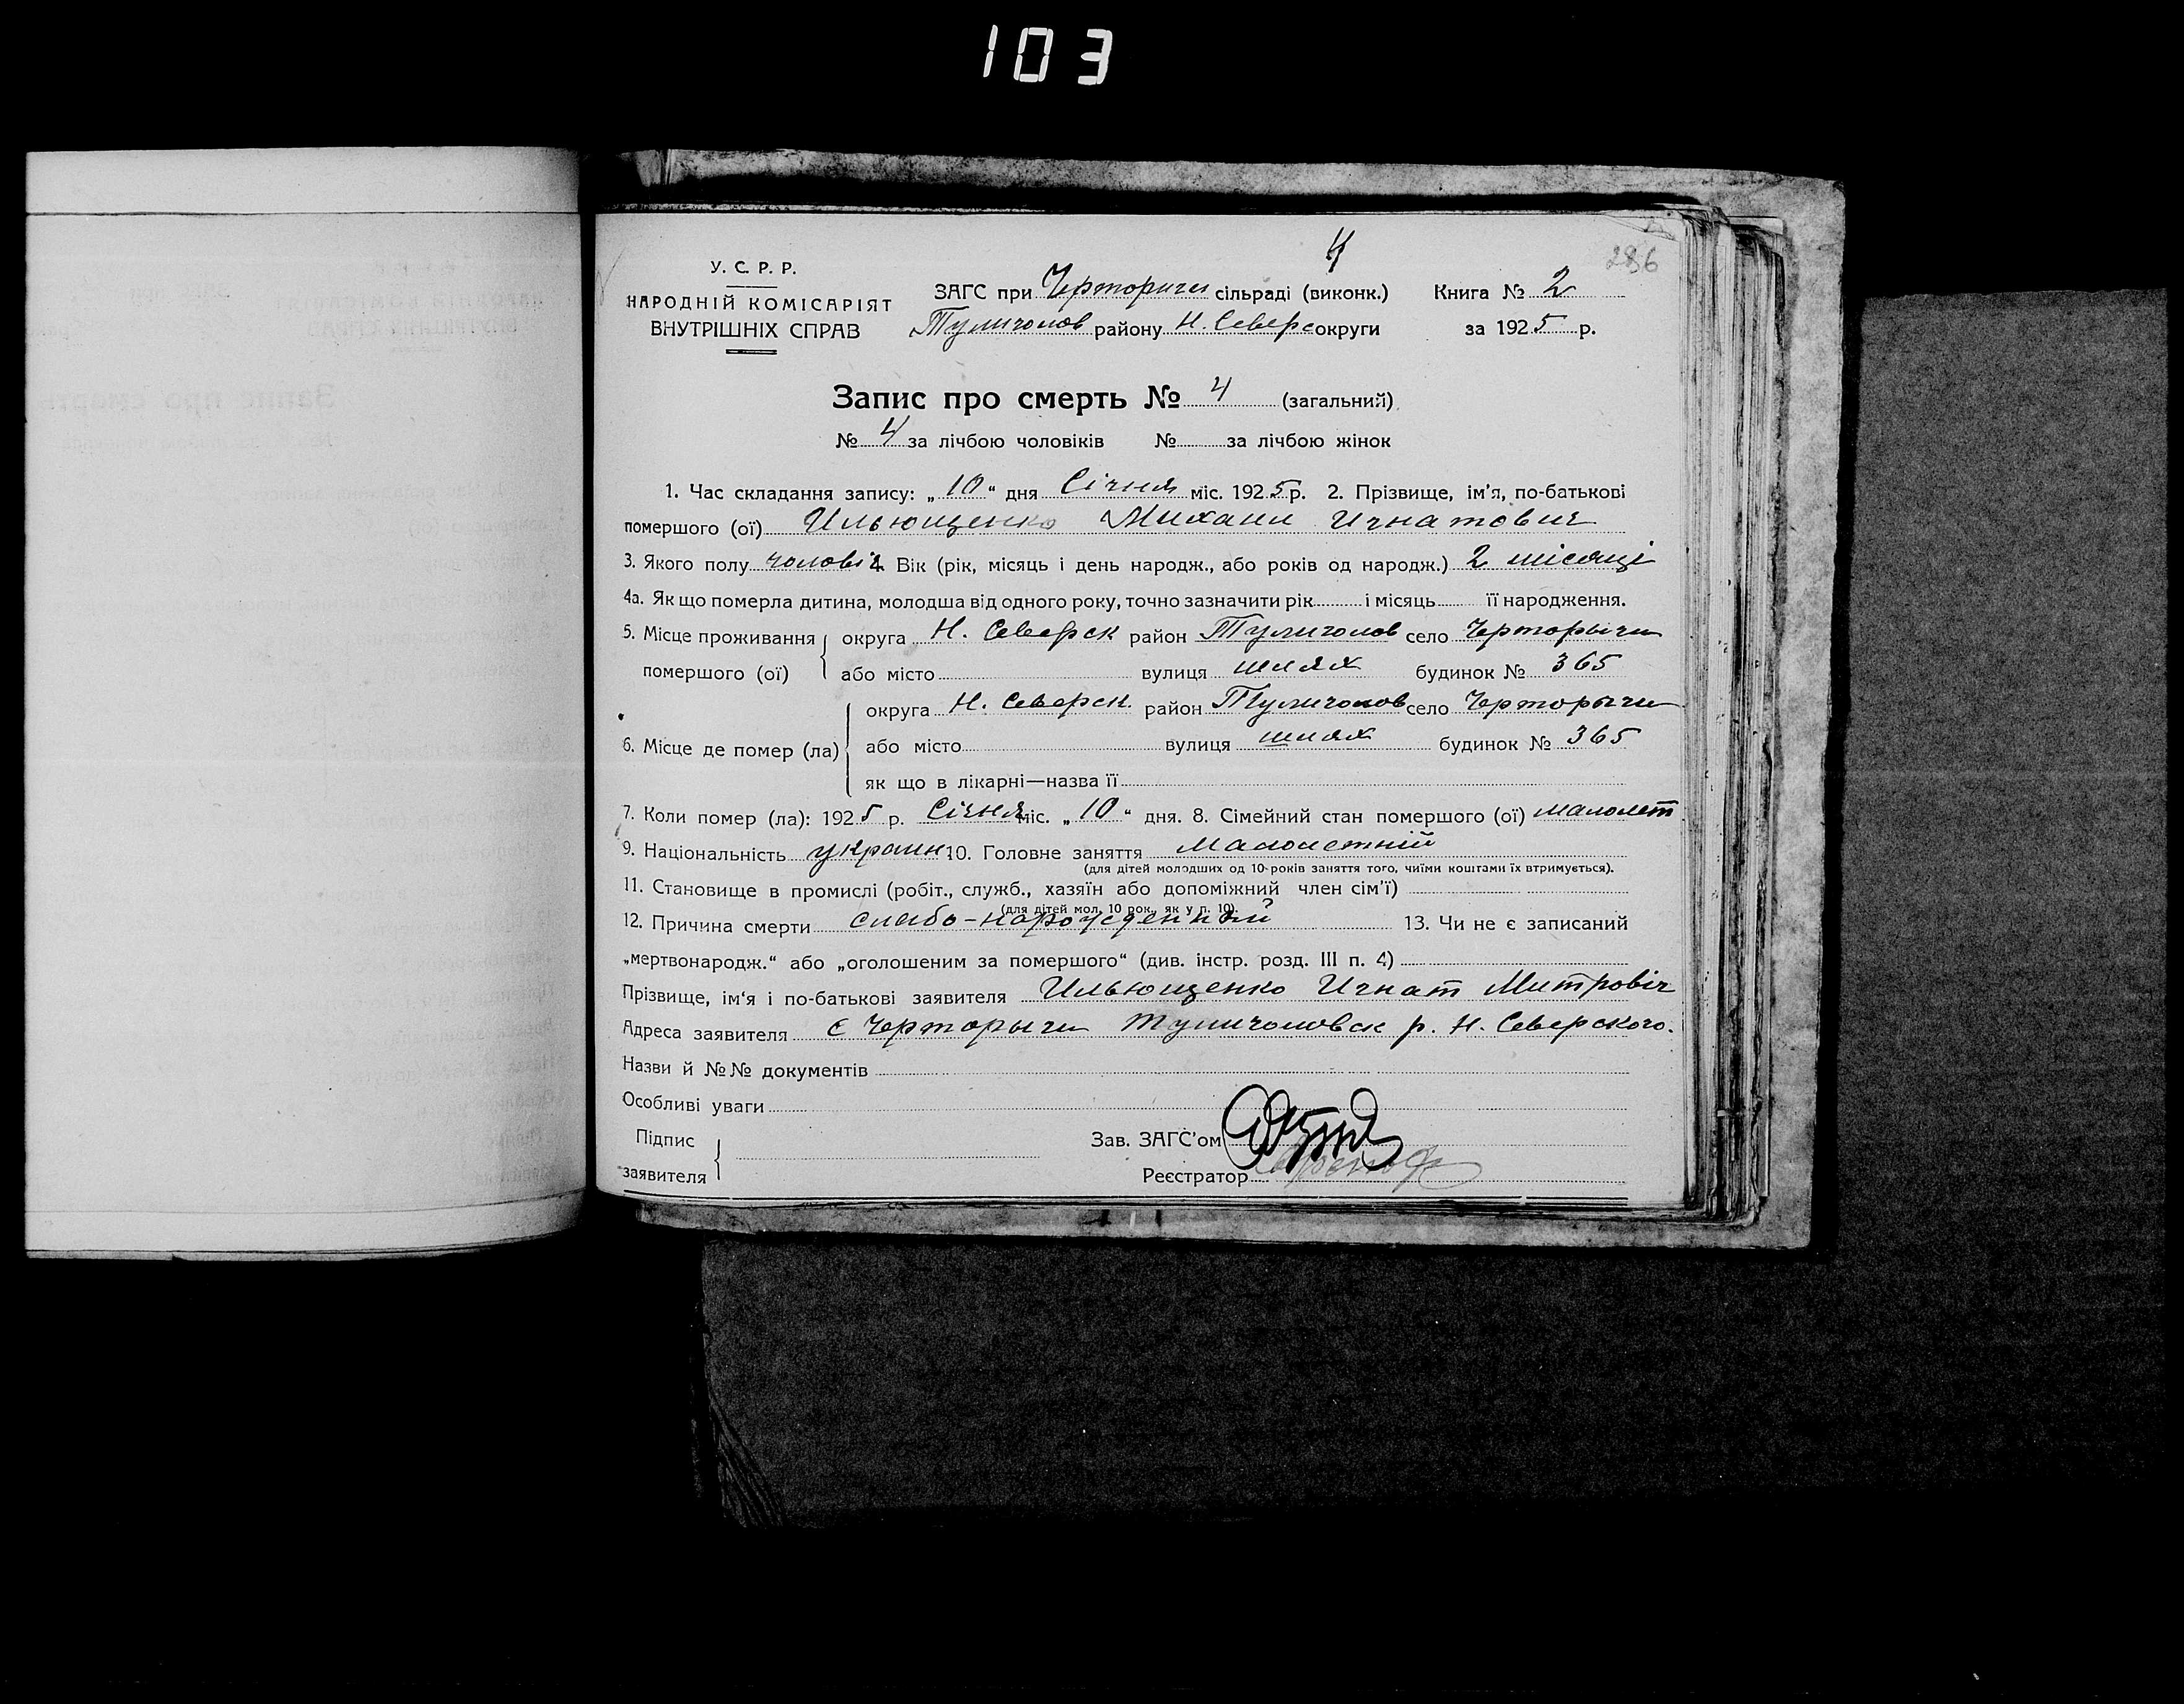 103
4
286
У. С. Р. Р.
НАРОДНІЙ КОМІСАРІЯТ
ВНУТРІШНІХ СПРАВ
ЗАГС при Черториги сільраді (виконк.) Книга № 2
Тулиголов району Н. Северс округи за 1925 р.
Запис про смерть № 4 (загальний)
№ 4 за лічбою чоловіків № за лічбою жінок
1. Час складання запису: „10“ дня Січня міс. 1925 р. 2. Прізвище, ім'я, по-батькові
помершого (ої) Ильющенко Михаил Игнатович
3. Якого полу чолові 4. Вік (рік, місяць і день народж., або років од народж.) 2 місяці
4а. Як що померла дитина, молодша від одного року, точно зазначити рік і місяць її народження.
5. Місце проживання помершого (ої) округа Н. Северск район Тулиголов село Черторыги
або місто вулиця шлях будинок № 365
6. Місце де помер (ла) округа Н. Северск. район Тулиголов село Черторыги
або місто вулиця шлях будинок № 365
як що в лікарні—назва її
7. Коли помер (ла): 1925 р. Січня міс. „10“ дня. 8. Сімейний стан помершого (ої) малолет
9. Національність украин. 10. Головне заняття Малолетній
(для дітей молодших од 10-років заняття того, чиїми коштами їх втримується).
11. Становище в промислі (робіт., служб., хазяїн або допоміжний член сім'ї)
(для дітей мол. 10 рок., як у п. 10).
12. Причина смерти слабо-нарожденный 13. Чи не є записаний
„мертвонародж.“ або „оголошеним за помершого“ (див. інстр. розд. III п. 4)
Прізвище, ім'я і по-батькові заявителя Ильющенко Игнат Митровіч
Адреса заявителя с Черторыги Тулиголовск р. Н. Северского.
Назви й №№ документів
Особливі уваги
Підпис заявителя
Зав. ЗАГС'ом
Реєстратор